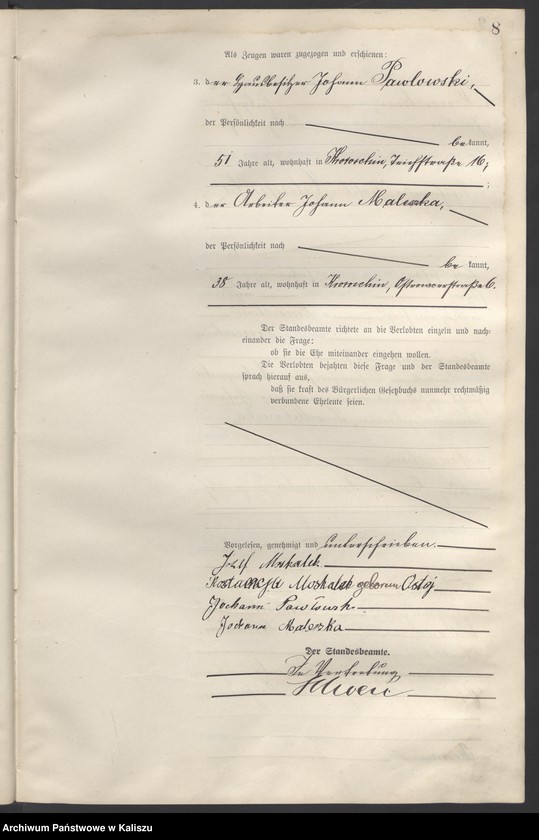 8
Als Zeugen waren zugezogen und erschienen:
3. der Hausbesitzer Johann Pawlowski,
der Persönlichkeit nach
bekannt,
51 Jahre alt, wohnhaft in Krotoschin, Teichstraße 16;
;
4. der Arbeiter Johann Maleszka,
der Persönlichkeit nach
bekannt,
38 Jahre alt, wohnhaft in Krotoschin, Ostrowoerstraße 6.
Der Standesbeamte richtete an die Verlobten einzeln und nach-
einander die Frage:
ob sie die Ehe miteinander eingehen wollen.
Die Verlobten bejahten diese Frage und der Standesbeamte
sprach hierauf aus,
daß sie kraft des Bürgerlichen Gesetzbuchs nunmehr rechtmäßig
verbundene Eheleute seien.
Vorgelesen, genehmigt und unterschrieben.
Józef Moskalek
Konstancyja Moskalek geborene
Johann Pawlowski
Johann Maleszka
Der Standesbeamte.
In Vertretung
Archiwum Państwowe w Kaliszu